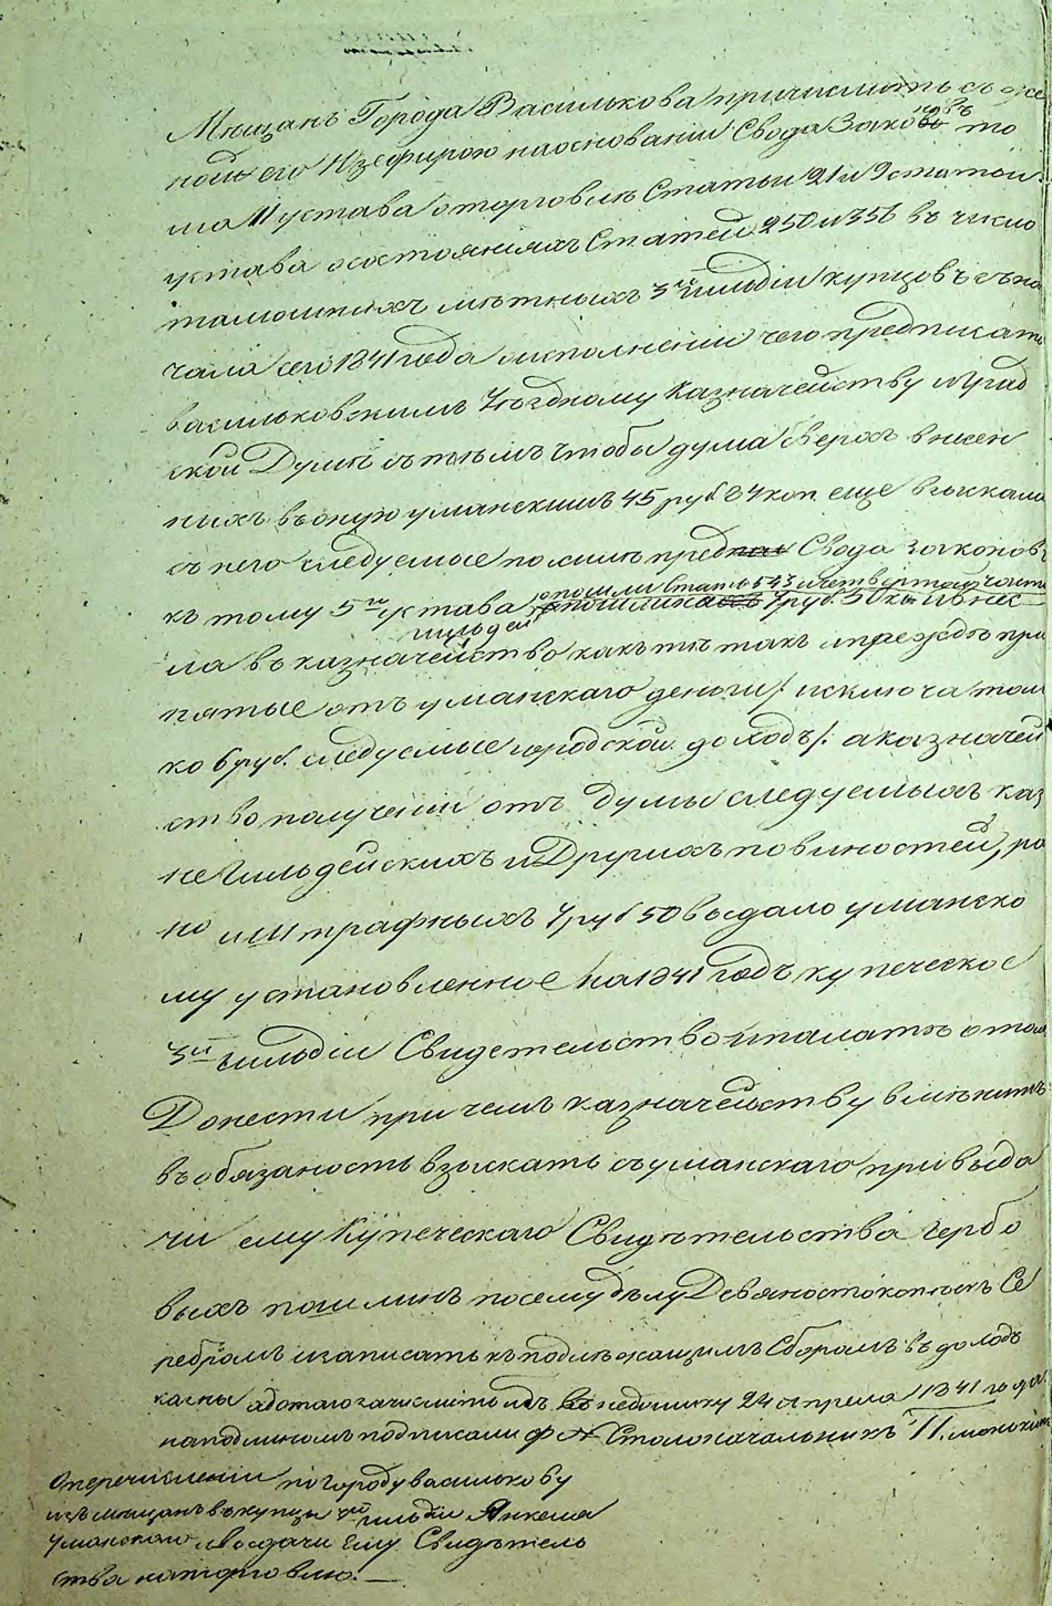 Мещанъ Города Василькова причислить съ же
ною его Юзефирою на основаніи Свода Законовъ то
ма 11 устава о торговлѣ Статьи 21 и 9
устава о состояніяхъ Статей 250 и 356 въ число
тамошнихъ мѣстныхъ 3й гильдіи купцовъ съ на
чала сего 1841 года о исполненіи чего предписать
васильковскимъ Уѣздному Казначейству и Град
ской Думѣ съ тѣмъ чтобы дума сверхъ внесен
нихъ въ оную уманскимъ 45 руб 84 коп. еще взыскала
съ него слѣдуемое по силѣ Свода законовъ
къ тому 5му устава о пошли Стать 543 и четвертой части
гильдей 4 руб. 50 ко. и внес
ла въ казначейство какъ тѣ такъ и прежде при
нятые отъ уманскаго деньги /: исключа толь
ко 6 руб. следуемые городской доходъ /: а казначей
ство получении отъ думы следуемыхъ каз
не Гильдейскихъ и Другихъ повиностей, ро
но и штрафныхъ 4 руб 50 выдало уманско
му установленное на 1841 годъ купеческое
3й гильдіи Свидетельство и палатѣ о томъ
Донести при чемъ казначейству вмѣнить
въ обязаность взыскать съ уманскаго при выда
чи ему Купеческаго Свидѣтельства гербо
выхъ пошлинъ по сему дѣлу Девяносто копѣекъ Се
ребромъ и записать къ подлежащимъ Сборамъ въ доходъ
казны а до того зачислить ихъ въ недоимку 24 апреля 1841 года
на подлиномъ подписали Столоначальникъ П.
О перечислении по городу василькову
изъ мещанъ въ купцы 3й гильдіи Янкеля
уманскаго и выдачи Ему Свидѣтель
ства на торговлю. —